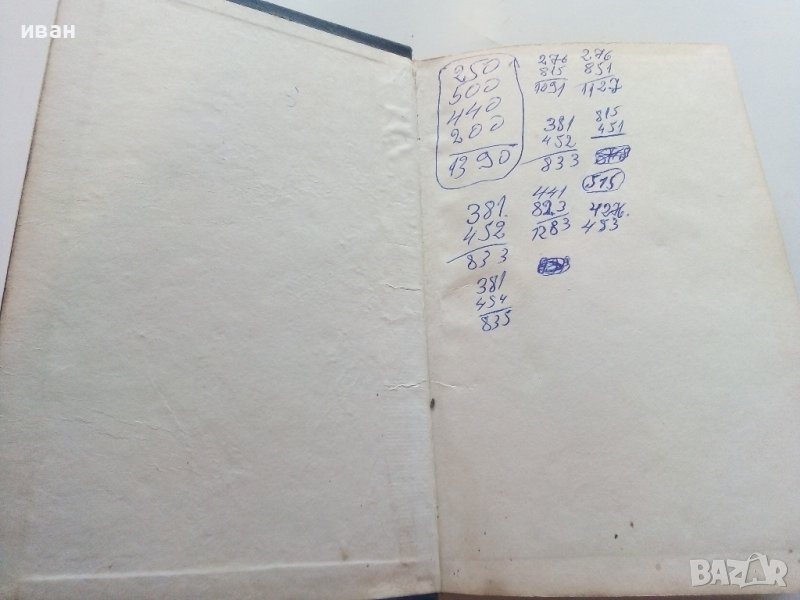 иван
250
500
440
200
1390
276
815
1091
276
851
1127
381
452
833
815
451
515
381
452
833
441
823
1283
453
381
454
835
BAZAR